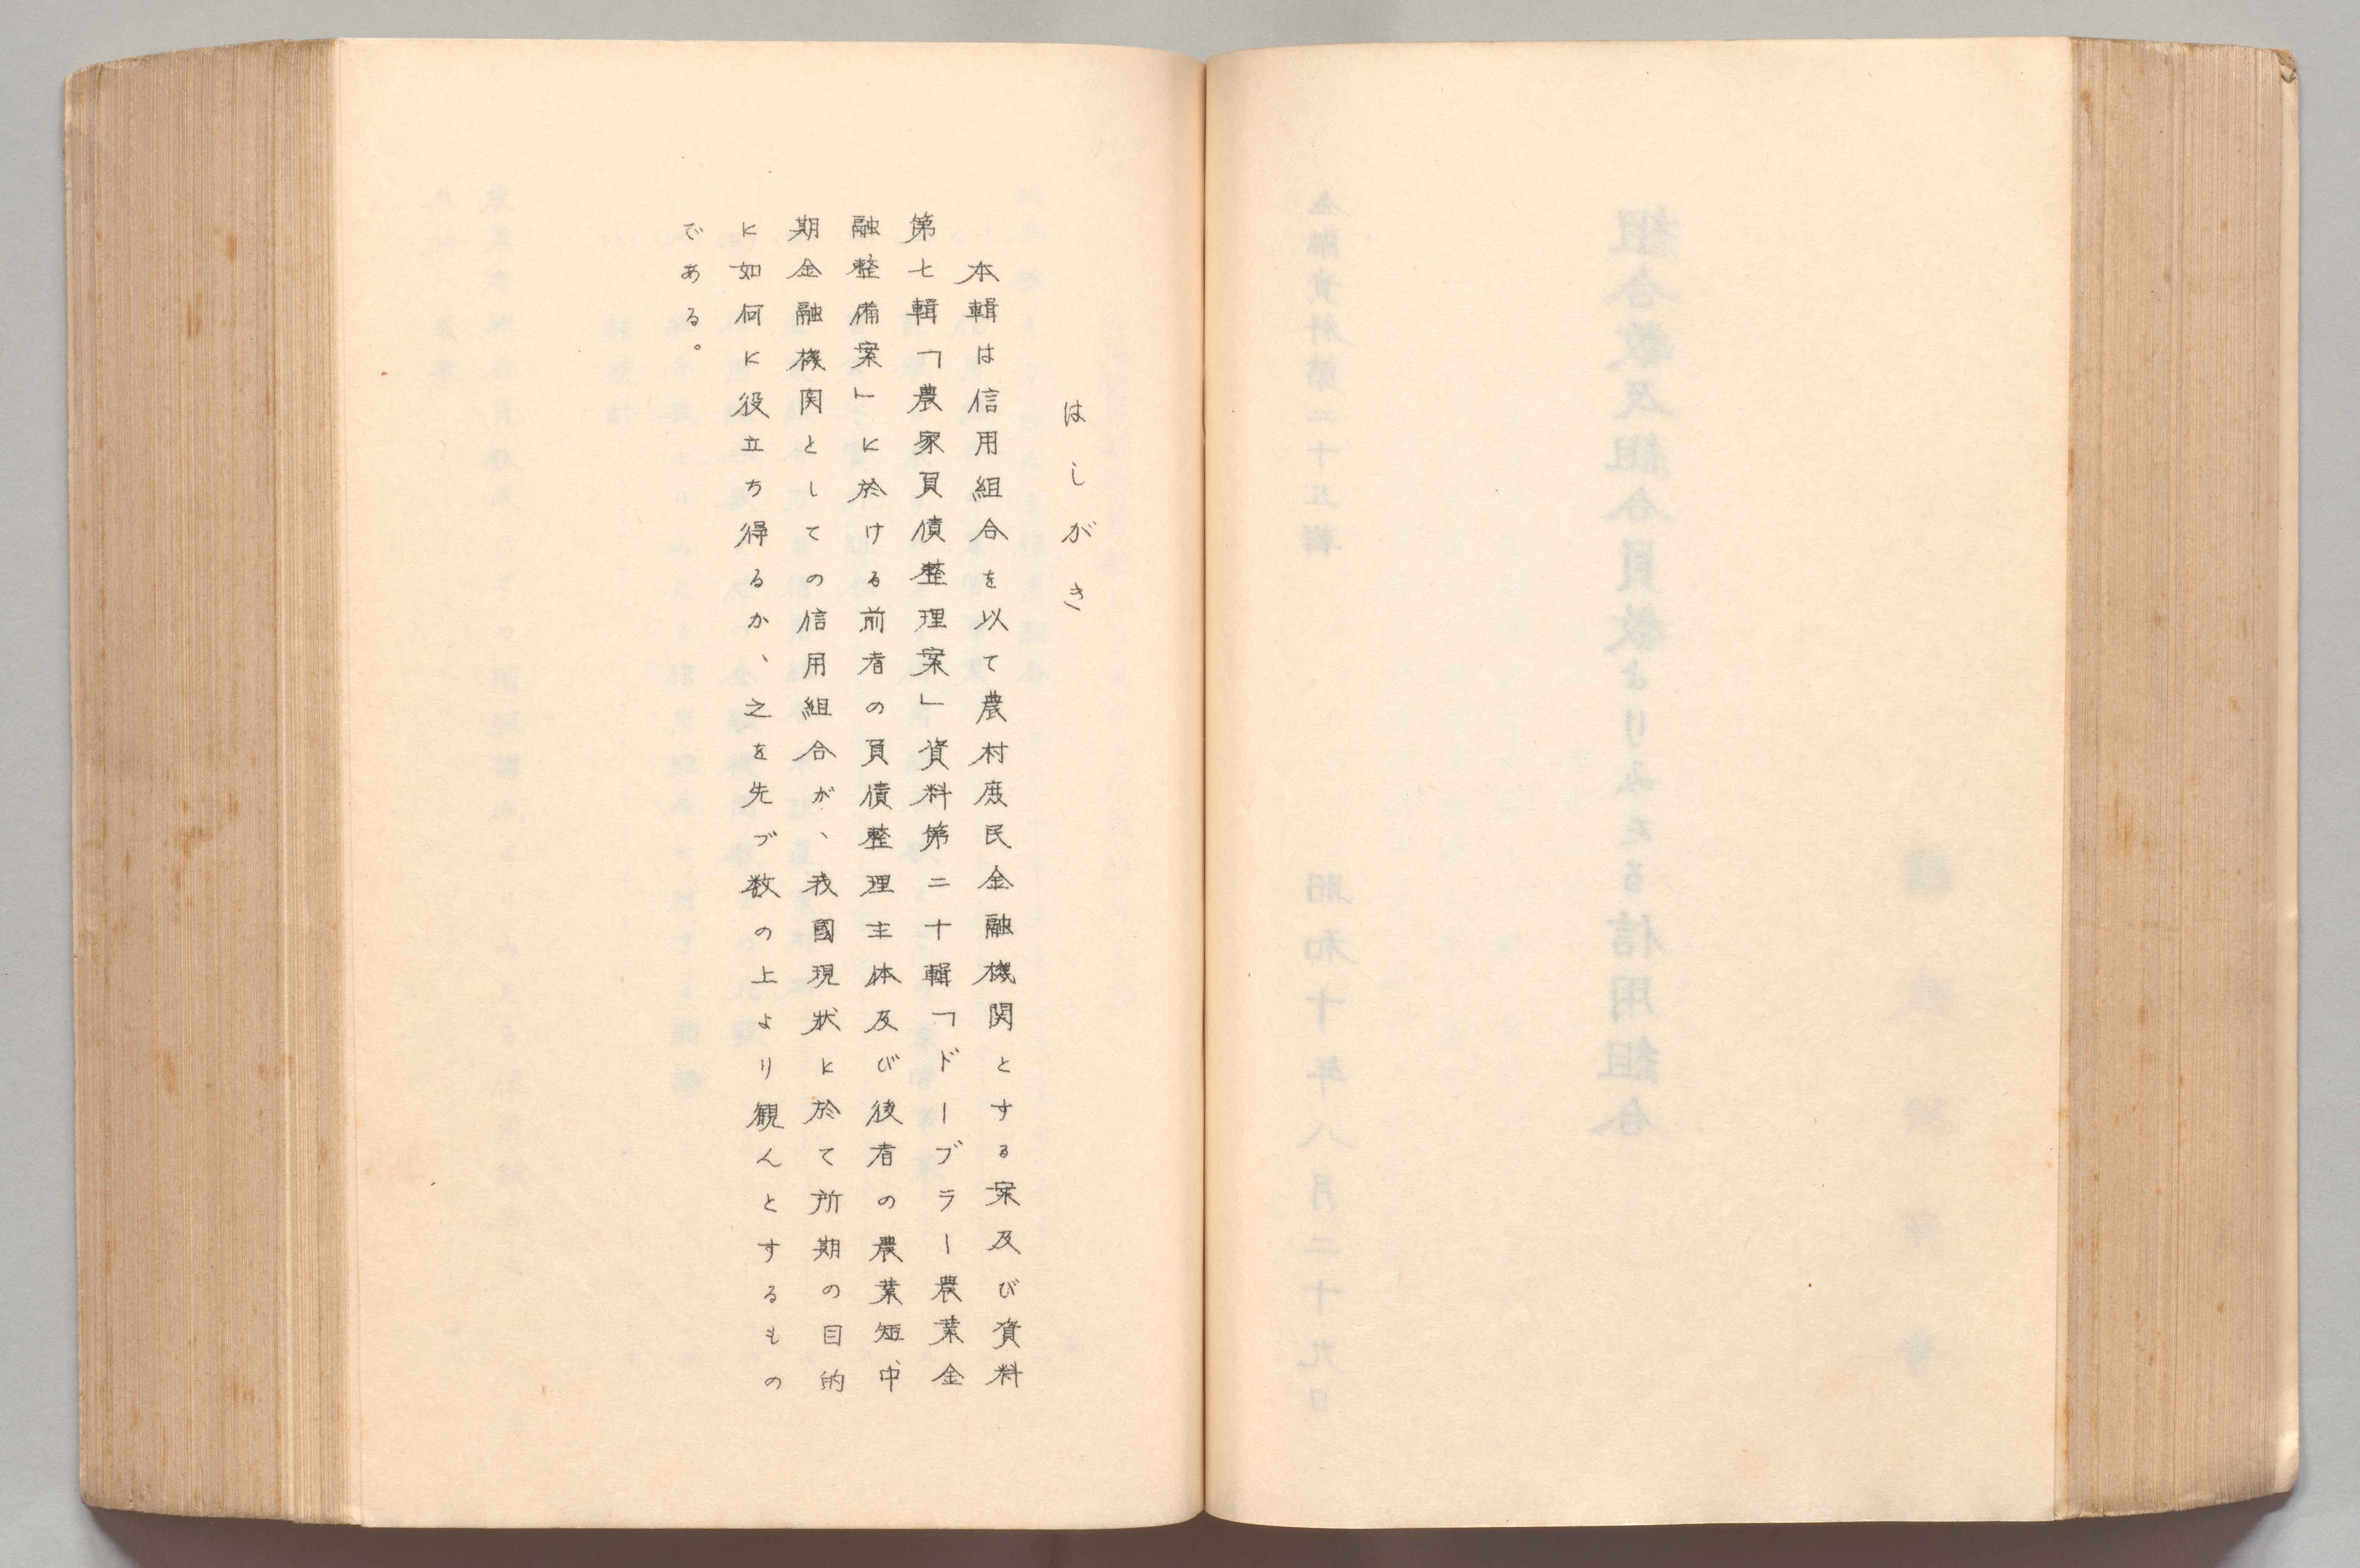 はしがき
本輯は信用組合を以て農村庶民金融機関とする案及び資料
第七輯「農家負債整理案」資料第二十輯「ドーブラー農業金
融整備案」に於ける前者の負債整理主体及び後者の農業短、中
期金融機関としての信用組合が、我國現状に於て所期の目的
に如何に役立ち得るか、之を先づ数の上より観んとするもの
である。